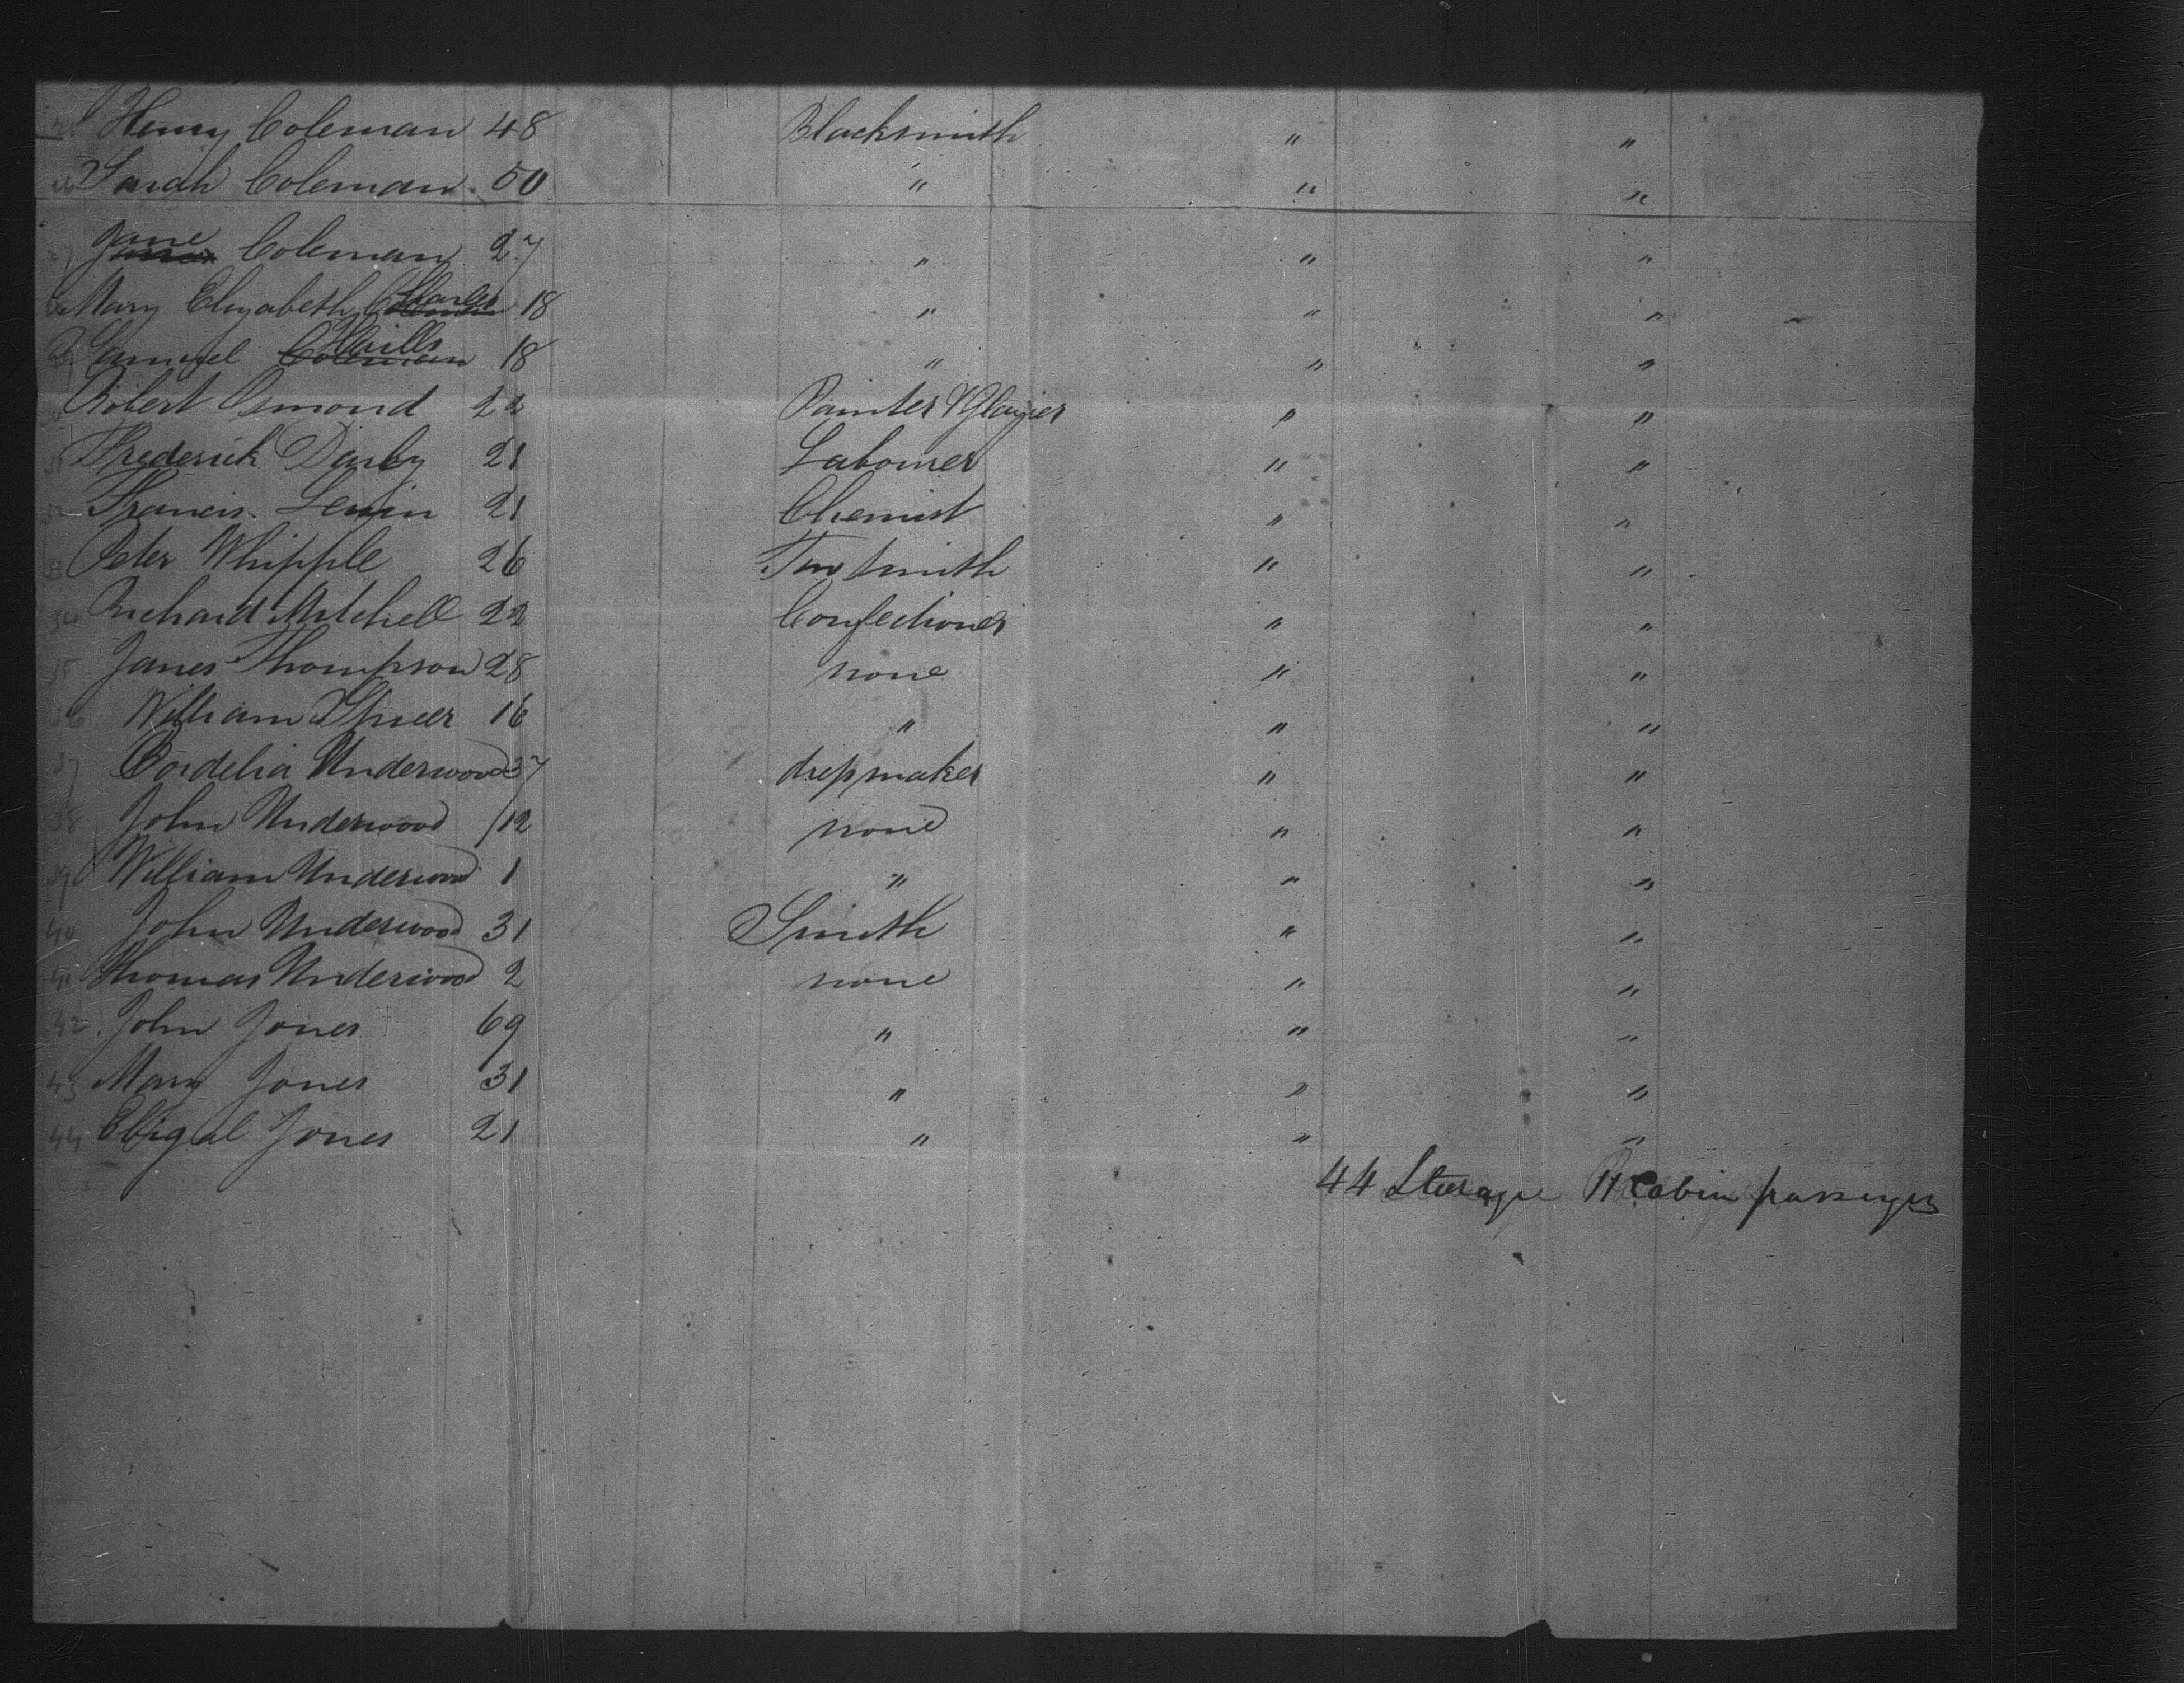 25 Henry Coleman 48 Blacksmith " "
26 Sarah Coleman 50 " " "
27 Jane Coleman 27 " " "
Mary Elizabeth 18 " " "
29 Samuel Coleman 18 " " "
Robert Osmond 22 Painter & Glazier " "
31 Frederick Darby 21 Labourer " "
32 Francis 21 Chemist " "
33 Peter Whipple 26 Tin Smith " "
34 Richard Mitchell 22 Confectioner " "
35 James Thompson 28 none " "
36 William 16 " " "
37 Cordelia Underwood 37 dressmaker " "
38 John Underwood 12 none " "
39 William Underwood 1 " " "
40 John Underwood 31 Smith " "
41 Thomas Underwood 2 none " "
42 John Jones 69 " " "
43 Mary Jones 31 " " "
44 Ebigal Jones 21 " " "
44 Sterage 11 Cabin passengers